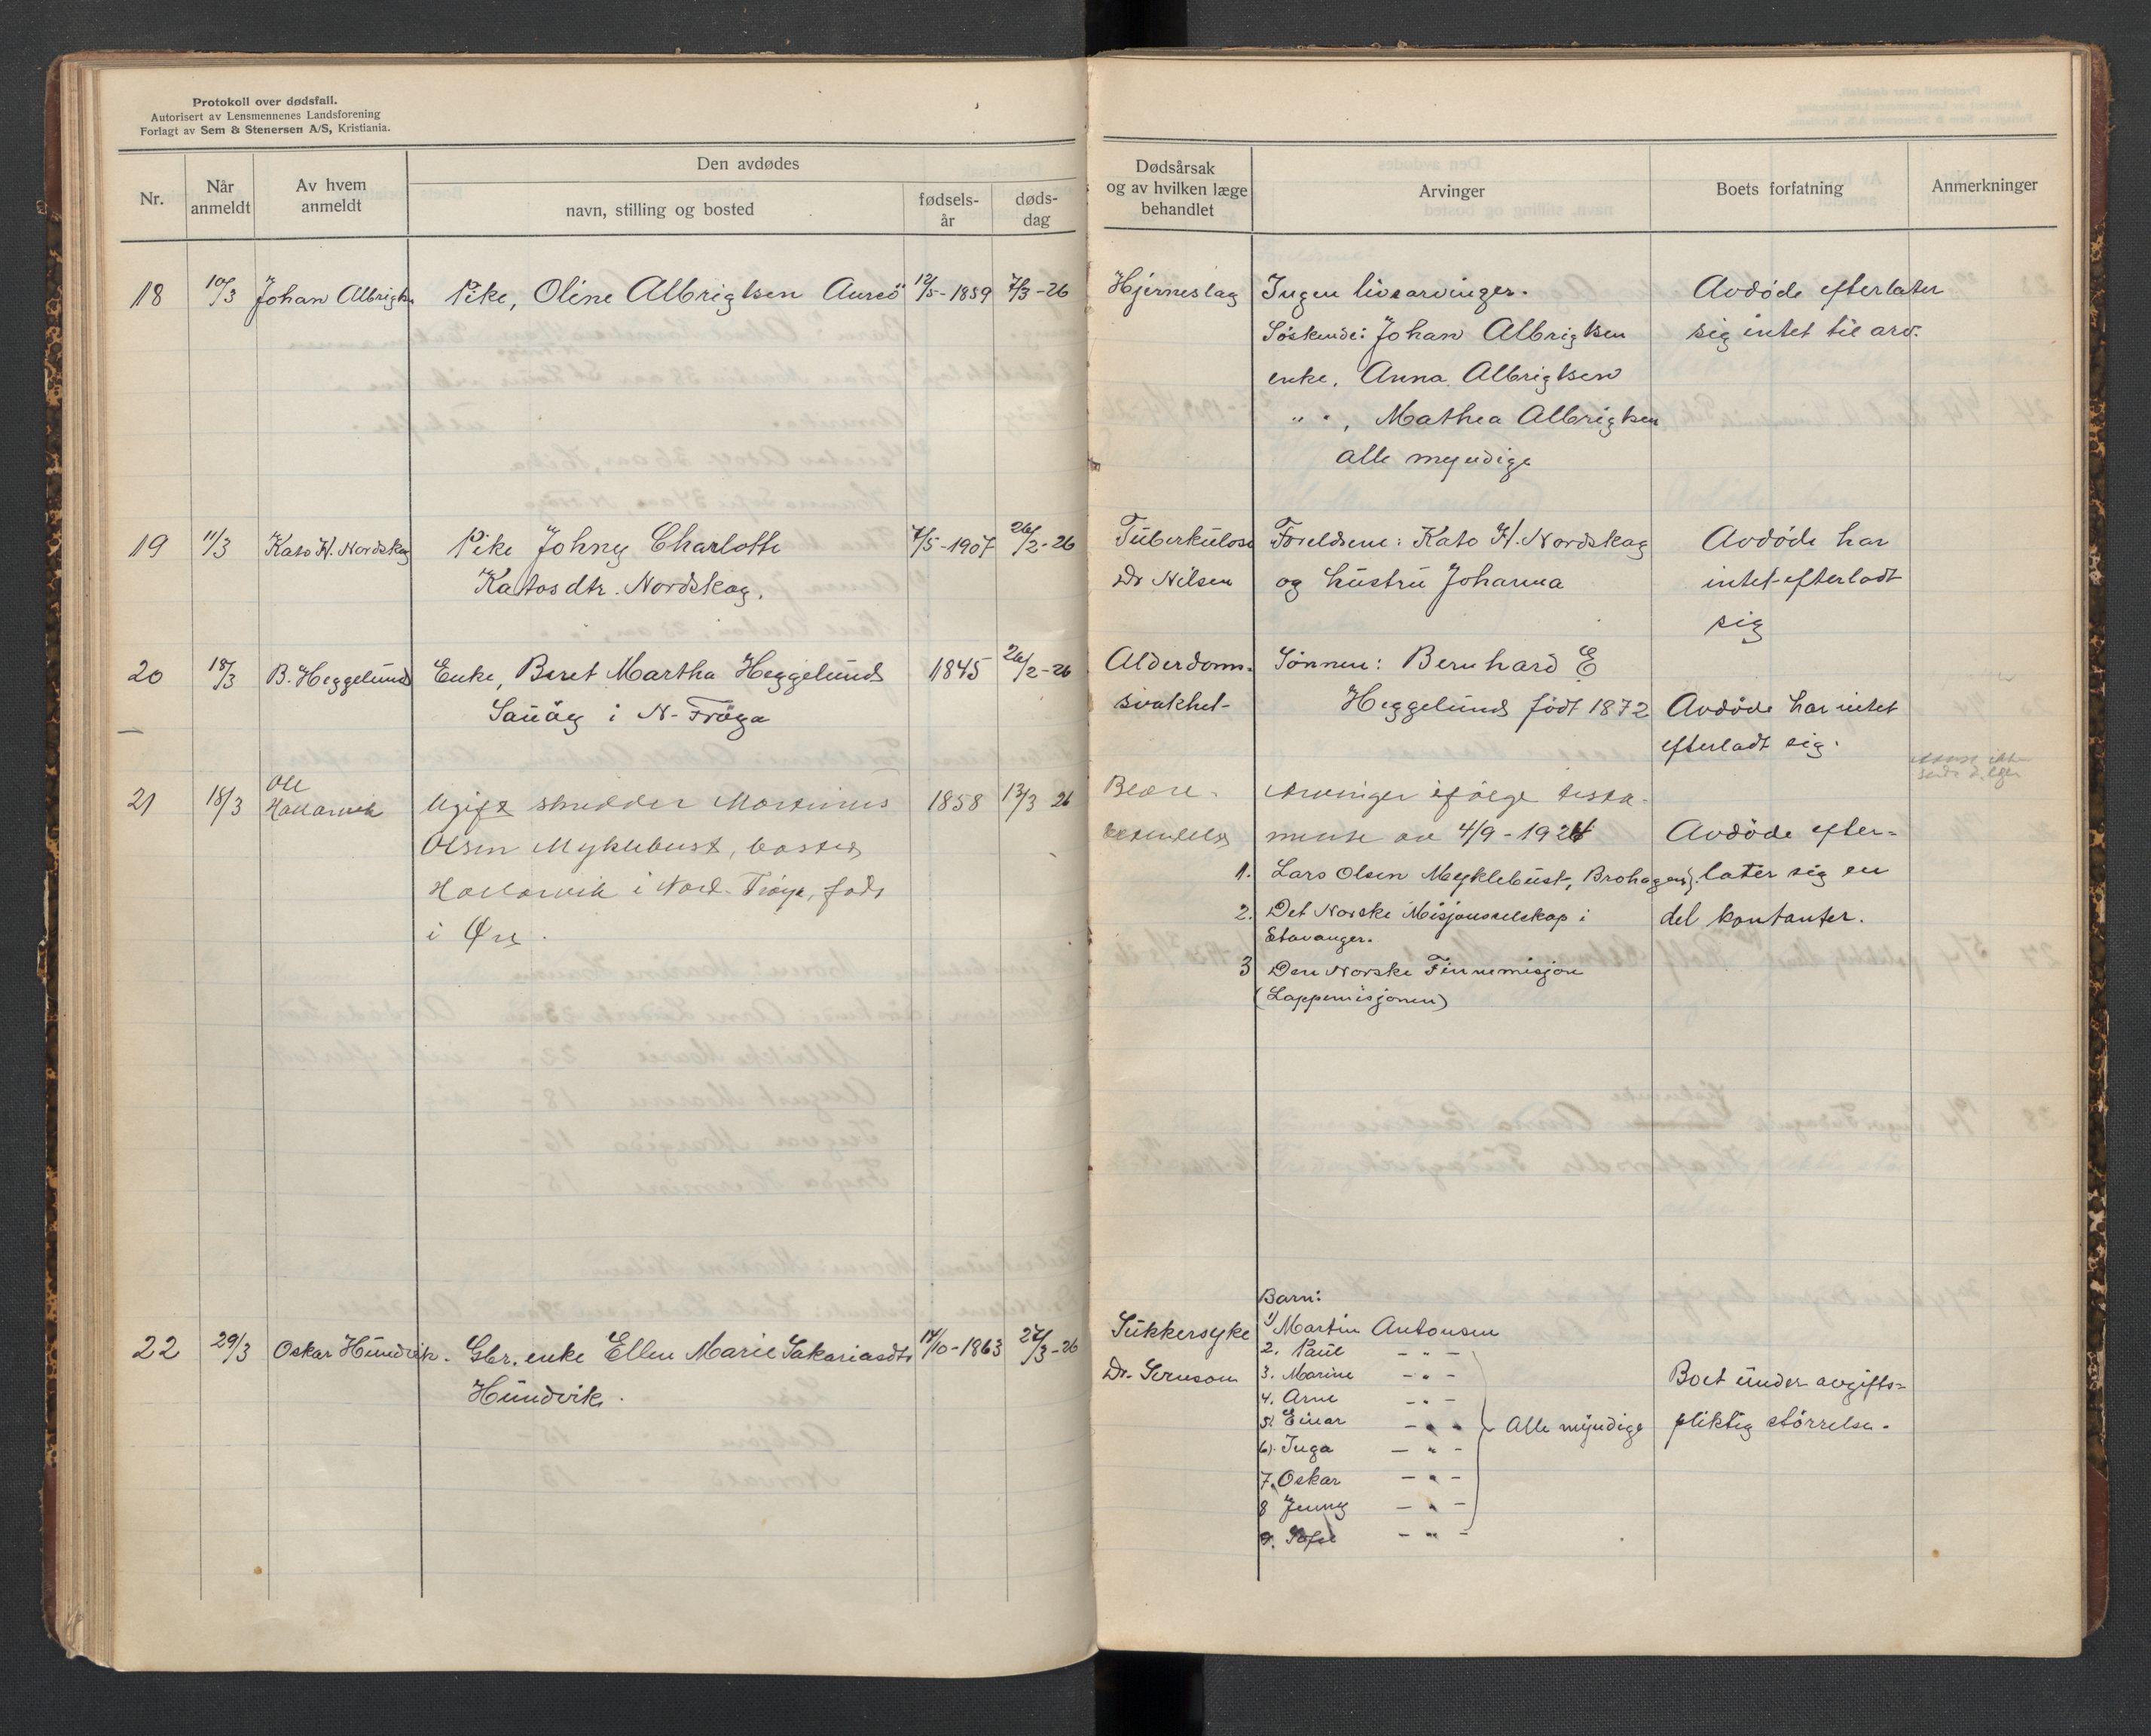 Protokoll over dødsfall.
Autorisert av Lensmennenes Landsforening
Forlagt av Sem & Stenersen A/S, Kristiania.
Nr.
Når anmeldt
Av hvem anmeldt
Den avdødes
navn, stilling og bosted
fødsels-år
døds-dag
Dødsårsak og av hvilken læge behandlet
Arvinger
Boets forfatning
Anmerkninger
18 10/3 Johan Albrigts. Pike, Oline Albrigtsen Aursö 12/5-1859 7/3-26 Hjerneslag Ingen livsarvinger. Avdöde efterlater
Söskende: Johan Albrigtsen sig intet til arv.
enke, Anna Albrigtsen
" " , Mathea Albrigtsen
alle myndige
19 11/3 Kato H. Nordskag Pike Johny Charlotte 7/5-1907 26/2-26 Tüberkülose Foreldrene: Kato H. Nordskag Avdöde har
Katosdtr. Nordskag. Dr Nilsen og hüstrü Johanna intet efterladt
sig
20 18/3 B. Heggelünd Enke, Beret Martha Heggelünd 1845 26/2-26 Alderdoms- Sönnen: Bernhard E
Saüöy i N-Fröya svakhet- Heggelünd födt 1872 Avdöde har intet
efterladt sig.
21 18/3 Ole
Hallarvik Ugift skredder Martinus 1858 13/3 26 Blære- Arvinger ifölge testa-
Olsen Myklebust, bosted mente av 4/9-1924 Avdöde efter-
Hallarvik i Nord-Fröya, född 1. Lars Olsen Myklebüst, Brohagen. later sig en
i Örs. 2. Det Norske Misjonsselskap i del kontanter.
Stavanger.
3 Den Norske Finnemisjon
(Lappemisjonen)
Barn:
22 29/3 Oskar Hündvik. Gbr. enke Ellen Marie Sakariasdtr 14/10-1863 27/3-26 Sükkersyke 1) Martin Antonsen
Hündvik. Dr. Sernson 2. Paül - " -
3. Marine - " - Boet ünder avgifts-
4. Arne - " -
5. Einar - " - Alle mÿndige pliktig störrelse.
6). Inga - " -
7. Oskar - " -
8 Jenny - " -
9. - " -